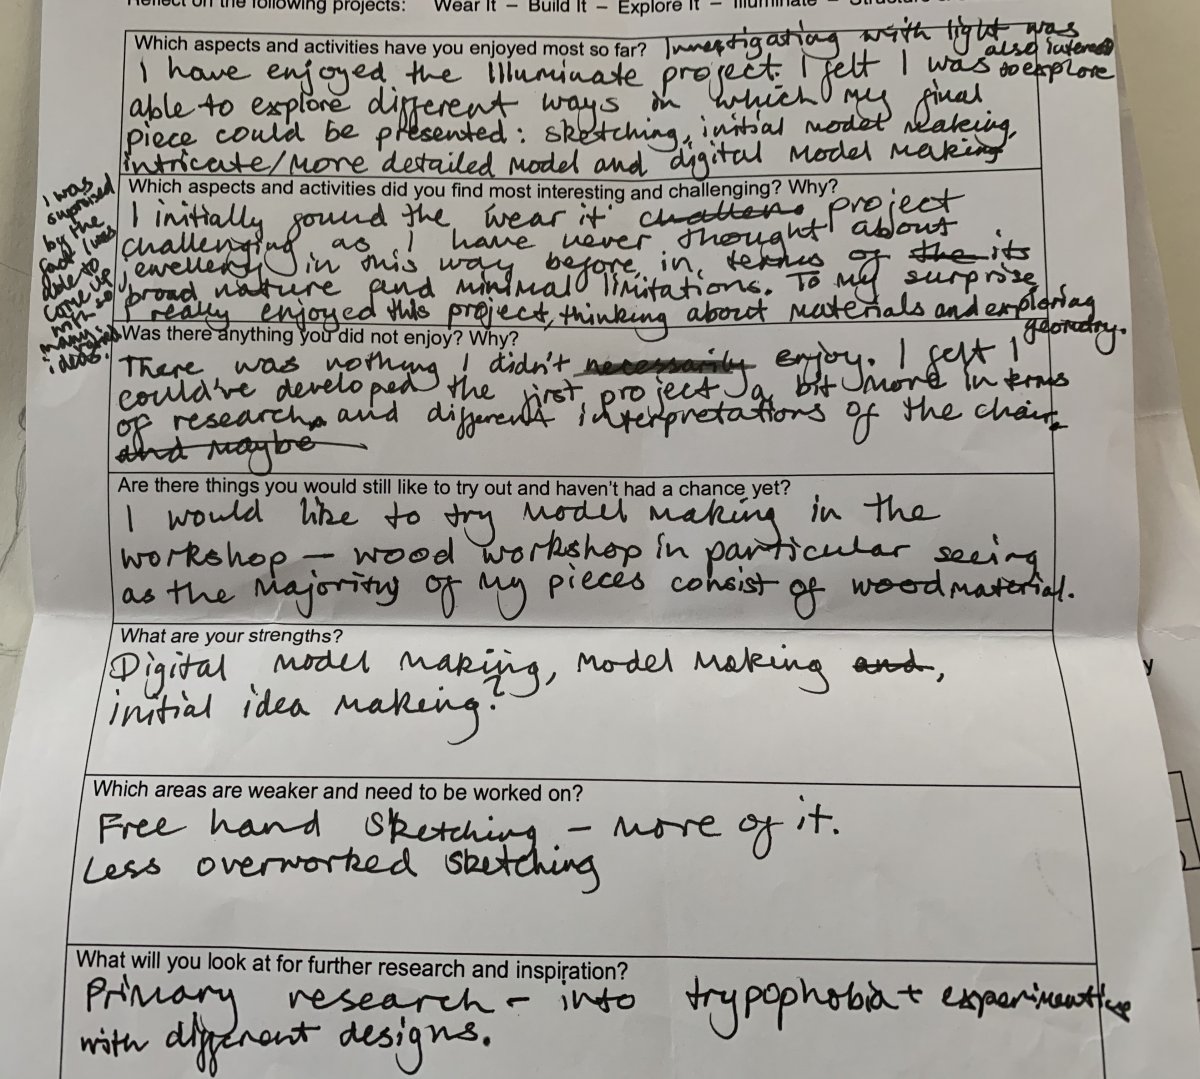 Reflect on the following projects: Wear It – Build It – Explore It – Illuminate –
Which aspects and activities have you enjoyed most so far? Investigating with light was
also
to explore
I have enjoyed the Illuminate project. I felt I was
able to explore different ways in which my final
piece could be presented: sketching, initial model making,
intricate/more detailed model and digital model making
Which aspects and activities did you find most interesting and challenging? Why?
I initially found the 'wear it' challen project
challenging as I have never thought about
jewellery in this way before, in terms of the its
broad nature and minimal limitations. To my surprise
I really enjoyed this project, thinking about materials and exploring
geometry.
I was
suprised
by the
fact I was
able to
come up
with so
many
ideas.
Was there anything you did not enjoy? Why?
There was nothing I didn't necessarily enjoy. I felt I
could've developed the first project a bit more in terms
of research and different interpretations of the chair.
and maybe
Are there things you would still like to try out and haven't had a chance yet?
I would like to try model making in the
workshop – wood workshop in particular seeing
as the majority of my pieces consist of wood material.
What are your strengths?
Digital model making, model making and,
initial idea making?
Which areas are weaker and need to be worked on?
Free hand sketching – more of it.
Less overworked sketching
What will you look at for further research and inspiration?
Primary research – into trypophobia + experimenting
with different designs.
y